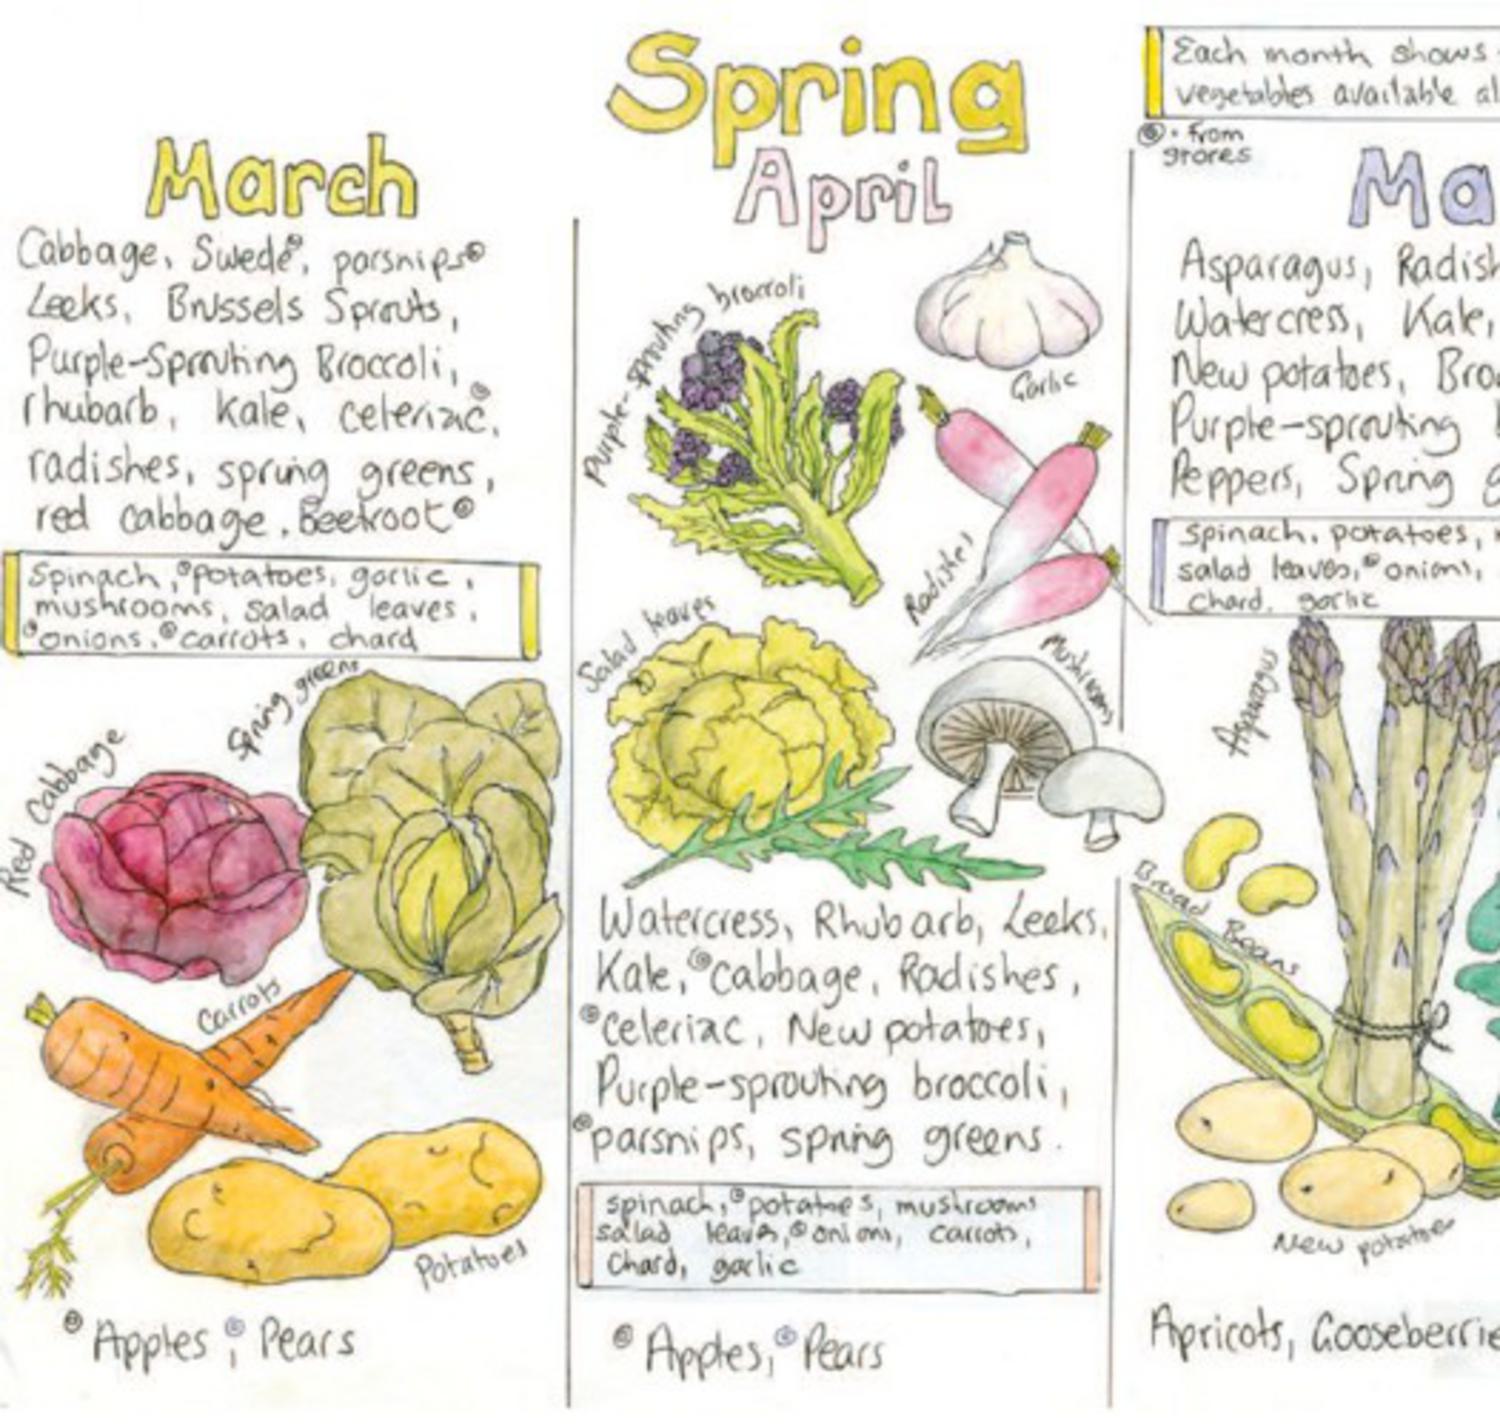 Spring
Each month shows
vegetables available al
from
stores
March
Cabbage, Swede, parsnips
Leeks, Brussels Sprouts,
Purple-Sprouting Broccoli,
rhubarb, Kale, celeriac,
radishes, spring greens,
red cabbage, Beetroot
Spinach, potatoes, garlic,
mushrooms, salad leaves,
onions, carrots, chard
Spring greens
Red Cabbage
Carrots
Potatoes
Apples, Pears
April
Purple-sprouting broccoli
Garlic
Radishes
Salad leaves
Mushrooms
Watercress, Rhubarb, Leeks,
Kale, cabbage, Radishes,
celeriac, New potatoes,
Purple-sprouting broccoli,
parsnips, spring greens.
spinach, potatoes, mushrooms
salad leaves, onions, carrots,
Chard, garlic
Apples, Pears
Ma
Asparagus, Radish
Watercress, Kale,
New potatoes, Bro
Purple-sprouting b
Peppers, Spring g
Spinach, potatoes,
salad leaves, onions,
Chard, garlic
Asparagus
Broad Beans
New potatoes
Apricots, Gooseberrie